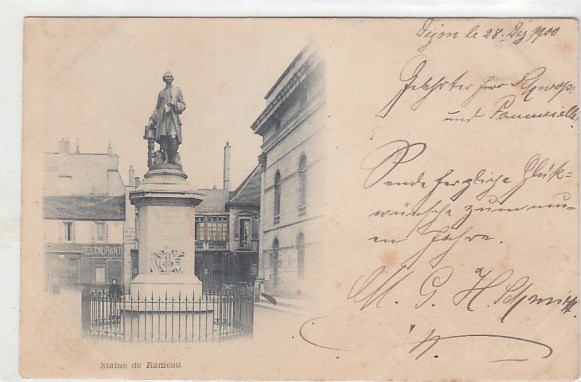 Dijon le 28. Dez 1900
Geehrter Herr
und Familie
Sende herzliche Glük-
wünsche zum neu-
en Jahre.
RESTAURANT
Statue de Rameau